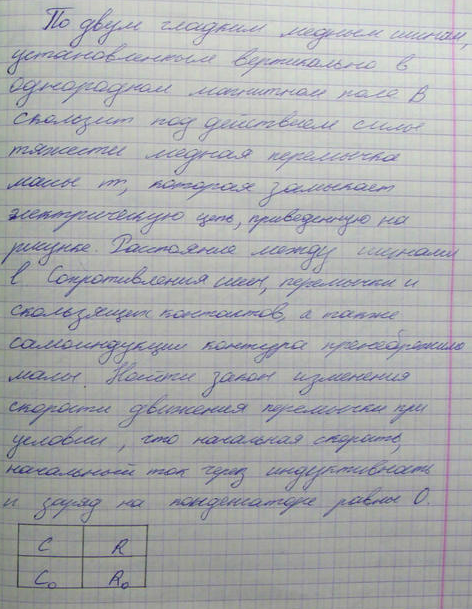 По двум гладким медным шинам,
установленным вертикально в
однородном магнитном поле B
скользит под действием силы
тяжести медная перемычка
массы m, которая замыкает
электрическую цепь, приведенную на
рисунке. Расстояние между шинами
l Сопротивления шин, перемычки и
скользящих контактов, а также
самоиндукция контура пренебрежимо
малы. Найти закон изменения
скорости движения перемычки при
условии, что начальная скорость,
начальный ток через индуктивность
и заряд на конденсаторе равны 0.
C R
C₀ R₀